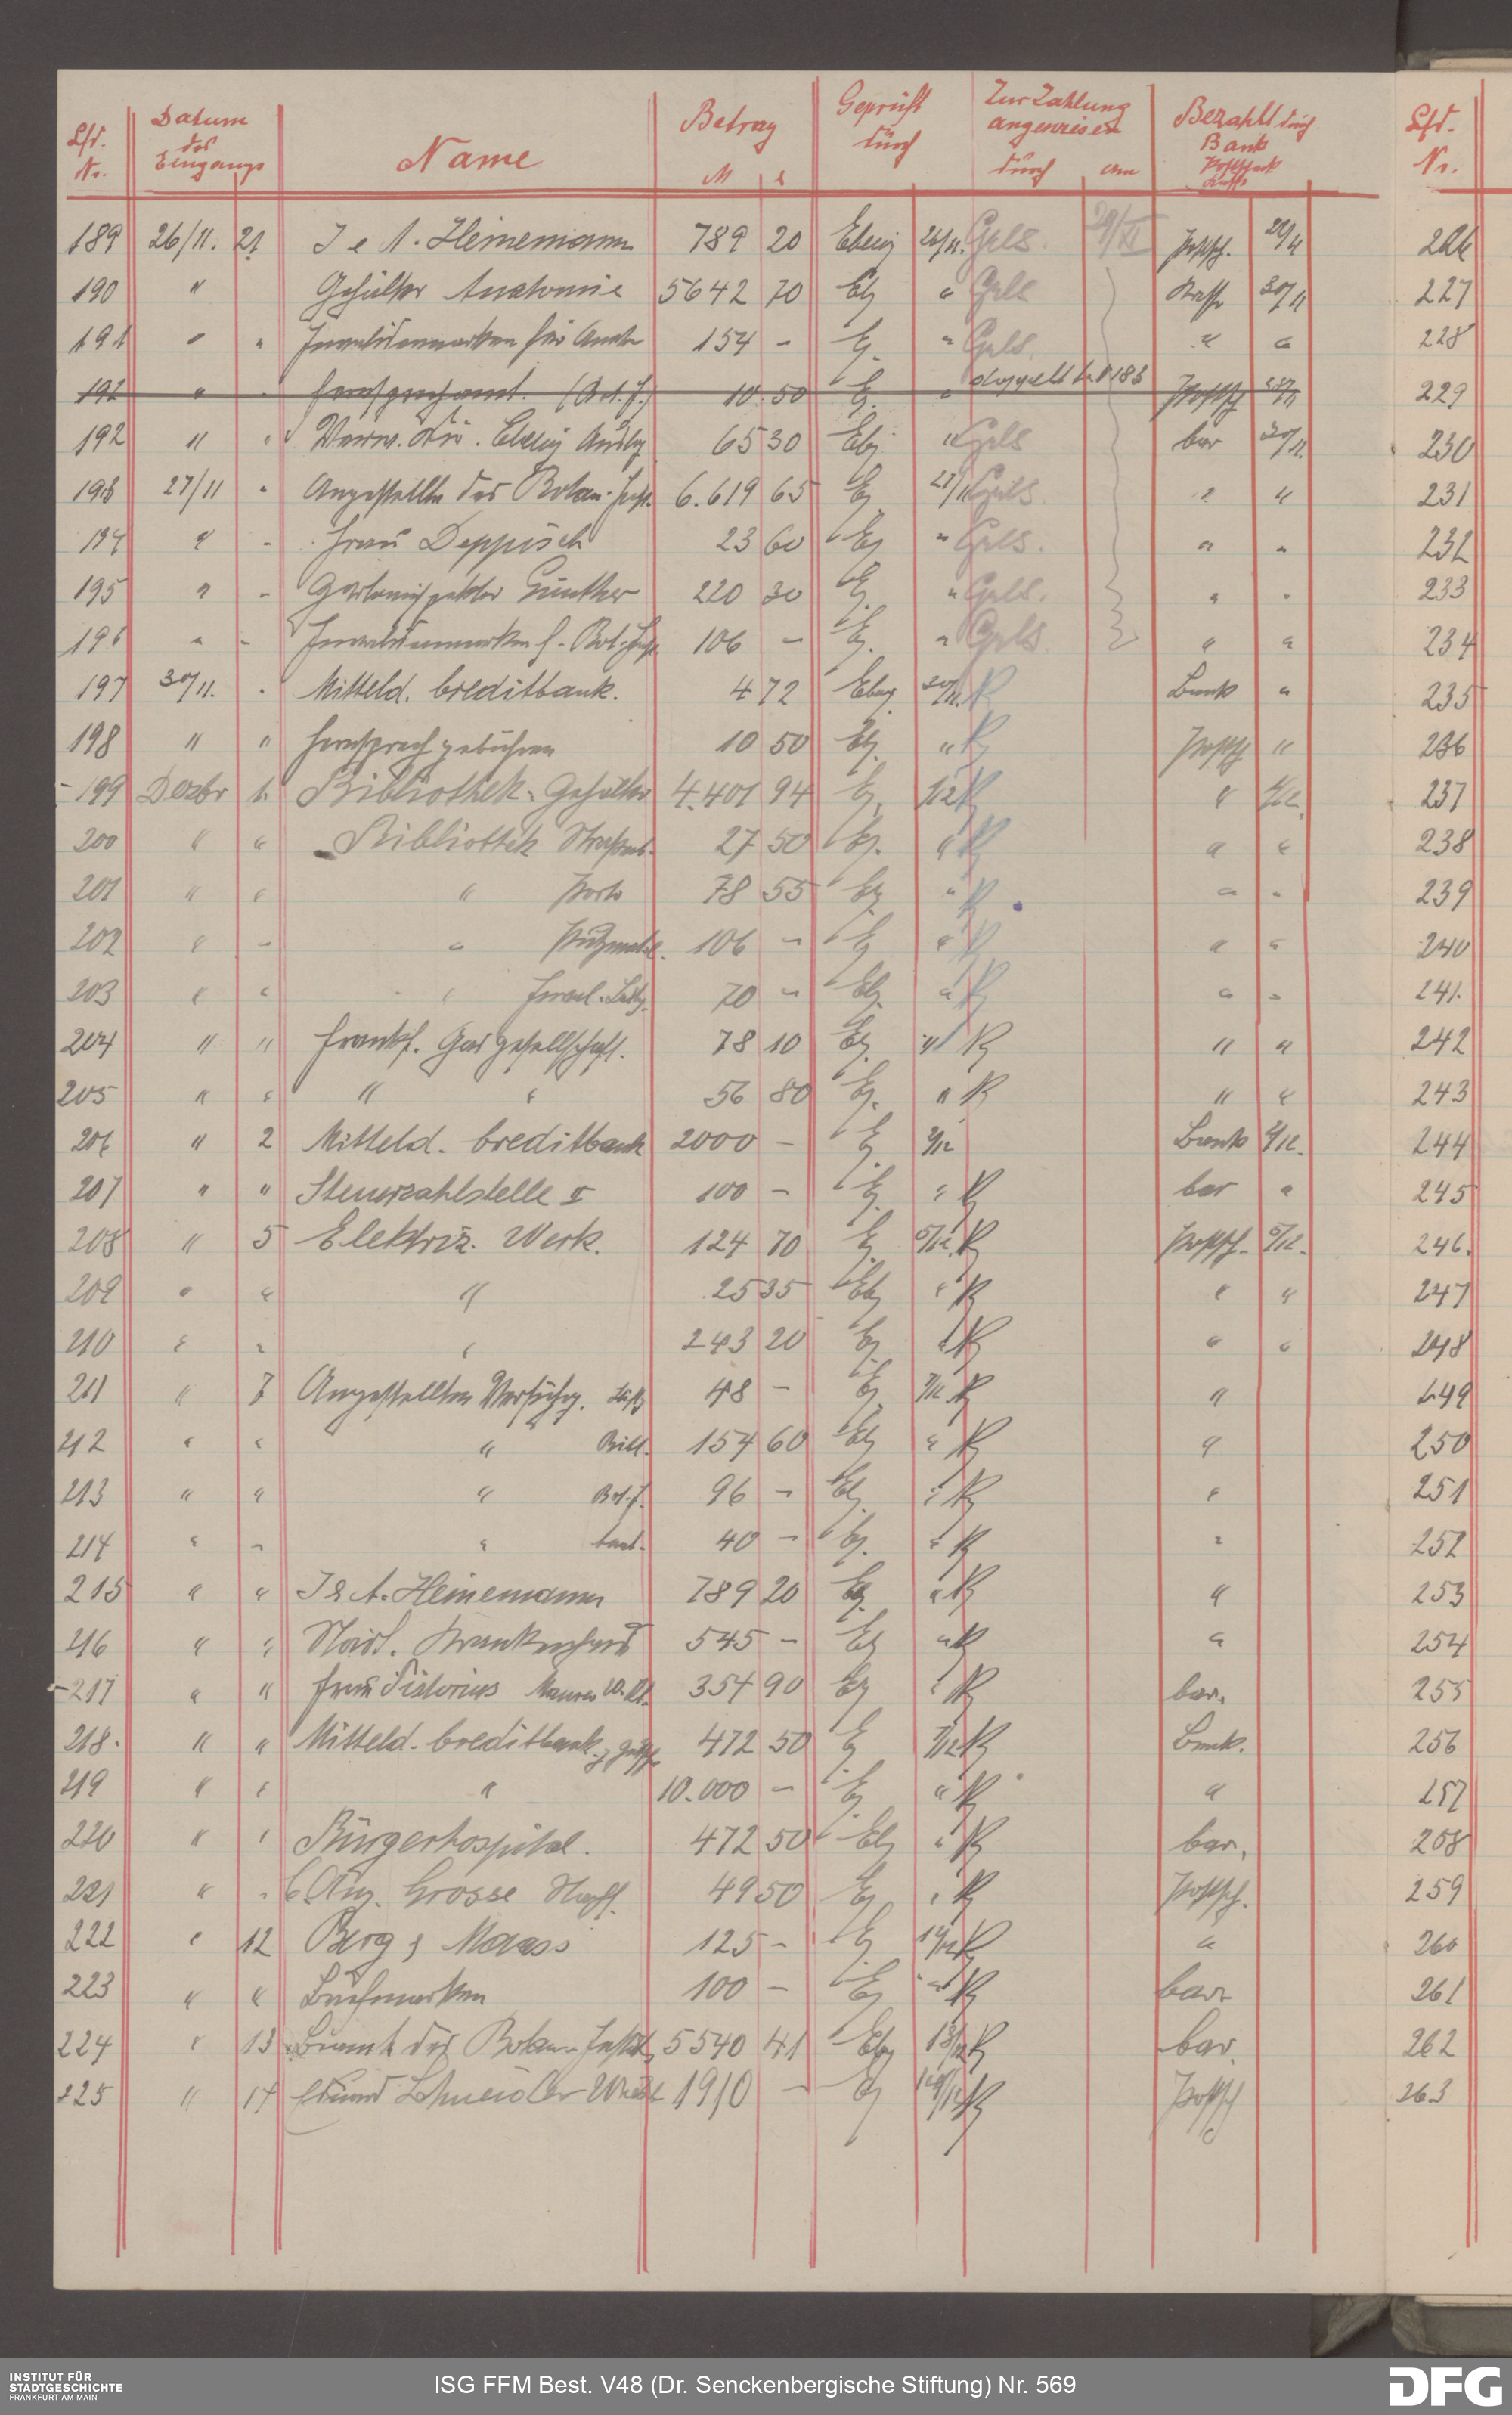 Lfd. Nr. Datum des Eingangs Name Betrag M Geprüft durch Zur Zahlung angewiesen durch am Bezahlt durch Bank Postscheck Kasse Lfd. Nr.
189 26/11. 21 J & A. Heinemann 789 20 Ebelig 26/11. Gels. 29/XI Postsch. 226
190 " Gehälter Anatomie 5642 70 Eb " Gels Kasse 30/11 227
191 " " Invalidenmarken für Anat 154 - E. " Gels. " " 228
192 " " Fernsprechamt. (Bot. J.) 10 50 E. " doppelt Nr 183 Postsch 229
192 " " Verw. Dir. Ebelig Auslg 65 30 Eb " Gels bar 30/11. 230
193 27/11 " Angestellte des Botan. Inst. 6.619 65 E 27/11 Gels. " " 231
194 " " Frau Deppisch 23 60 Eb " Gels. " " 232
195 " " Garteninspektor Günther 220 30 E. " Gels. " " 233
196 " " Invalidenmarken f. Bot. Inst 106 - E. " Gels. " " 234
197 30/11. " Mitteld. Creditbank. 4 72 Ebelg 30/11. Bank " 235
198 " " Fernsprechgebühren 10 50 Eb. " Postsch " 236
199 Dezbr 1. Bibliothek-Gehälter 4.401 94 E. 1/12 " 1/12. 237
200 " " Bibliothek 27 50 E. " " " 238
201 " " " Porto 78 55 E " " " 239
202 " " " Putzmat. 106 - E " " " 240
203 " " " 70 - Eb. " " " 241.
204 " " Frankf. Gasgesellschaft. 78 10 E. " " " 242
205 " " " " 56 80 E. " " " 243
206 " 2 Mitteld. Creditbank 2000 - E 2/12 Bank 2/12. 244
207 " " Steuerzahlstelle II 100 - E. " bar " 245
208 " 5 Elektriz. Werk. 124 70 E. 5/12. Postsch. 5/12. 246.
209 " " " 25 35 Eb " " " 247
210 " " " 243 20 E " " " 248
211 " 7 Angestellten Versichrg. 48 - E 7/12 " 249
212 " " " Bibl. 154 60 Eb " " 250
213 " " " Bot. J. 96 - Eb. " " 251
214 " " " 40 - E. " " 252
215 " " J & A. Heinemann 789 20 E. " " 253
216 " " Städt. Krankenhaus 545 - Eb " " 254
217 " " Frau Pistorius 354 90 E " bar. 255
218. " " Mitteld. Creditbank 472 50 E 7/12 Bank. 256
219 " " " 10.000 - E " " 257
220 " " Bürgerhospital. 472 50 Eb " bar. 258
221 " " Grosse 49 50 E " Postsch. 259
222 " 12 Berg & Maass 125 - E 12/12 " 260
223 " " Briefmarken 100 - E " bar 261
224 " 13 Beamt des Botan. Instit. 5540 41 Eb 13/12 bar. 262
225 " 14 Schneider 1910 - E 14/12 Postsch 263
INSTITUT FÜR
STADTGESCHICHTE
FRANKFURT AM MAIN
ISG FFM Best. V48 (Dr. Senckenbergische Stiftung) Nr. 569
DFG